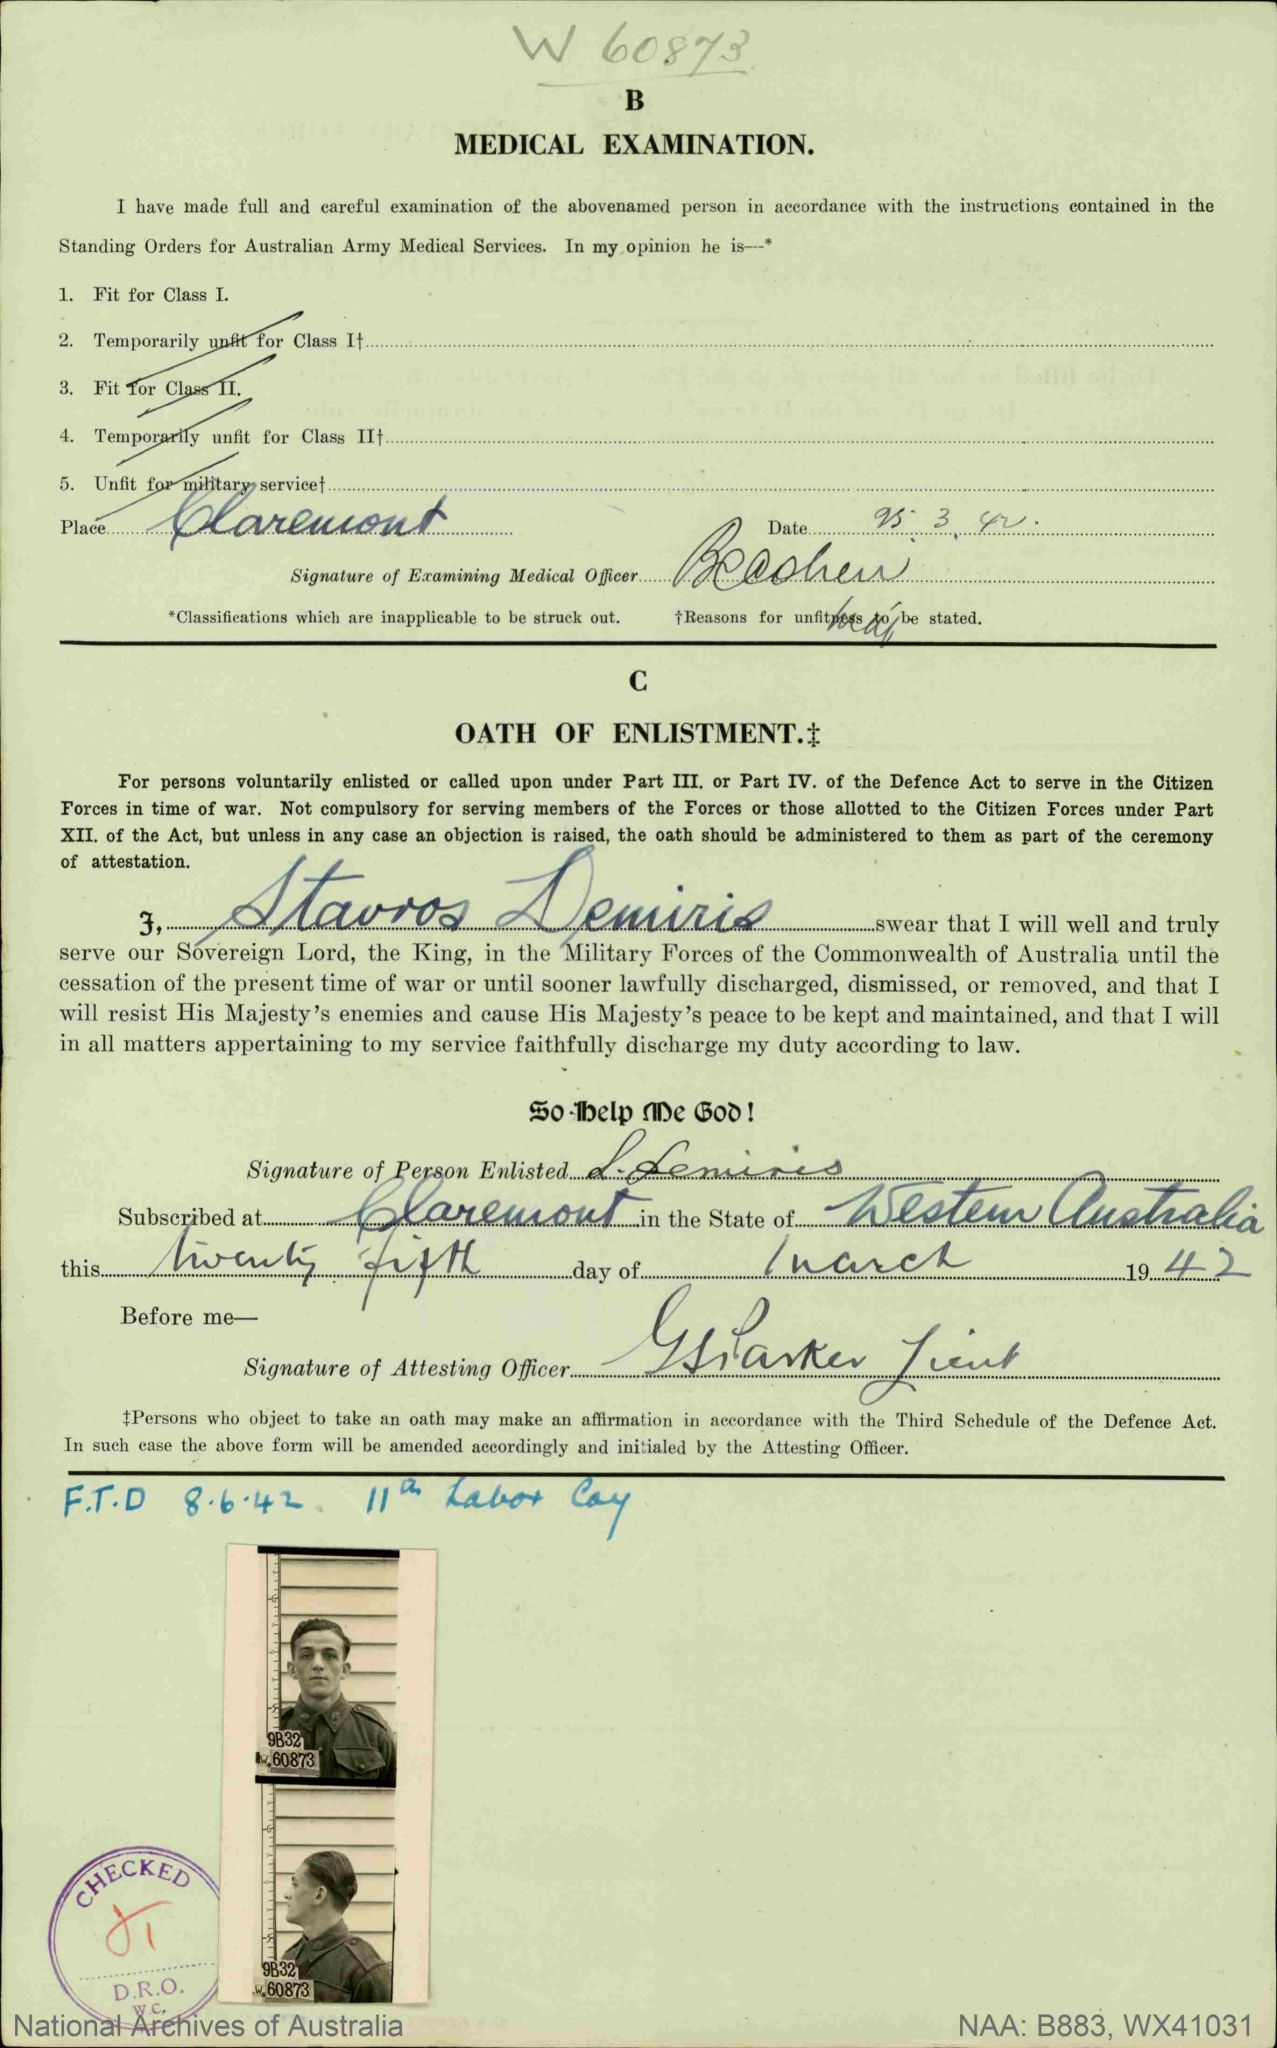 W 60873
B
MEDICAL EXAMINATION.
I have made full and careful examination of the abovenamed person in accordance with the instructions contained in the
Standing Orders for Australian Army Medical Services. In my opinion he is—*
1. Fit for Class I.
2. Temporarily unfit for Class I†
3. Fit for Class II.
4. Temporarily unfit for Class II†
5. Unfit for military service†
Place Claremont Date 25.3.42.
Signature of Examining Medical Officer
*Classifications which are inapplicable to be struck out. †Reasons for unfitness to be stated.
Maj
C
OATH OF ENLISTMENT.‡
For persons voluntarily enlisted or called upon under Part III. or Part IV. of the Defence Act to serve in the Citizen
Forces in time of war. Not compulsory for serving members of the Forces or those allotted to the Citizen Forces under Part
XII. of the Act, but unless in any case an objection is raised, the oath should be administered to them as part of the ceremony
of attestation.
I, Stavros Demiris swear that I will well and truly
serve our Sovereign Lord, the King, in the Military Forces of the Commonwealth of Australia until the
cessation of the present time of war or until sooner lawfully discharged, dismissed, or removed, and that I
will resist His Majesty's enemies and cause His Majesty's peace to be kept and maintained, and that I will
in all matters appertaining to my service faithfully discharge my duty according to law.
So Help Me God!
Signature of Person Enlisted S. Demiris
Subscribed at Claremont in the State of Western Australia
this twenty fifth day of March 1942
Before me—
Signature of Attesting Officer GS Parker Lieut
‡Persons who object to take an oath may make an affirmation in accordance with the Third Schedule of the Defence Act.
In such case the above form will be amended accordingly and initialed by the Attesting Officer.
F.T.D 8.6.42. 11th Labor Coy
9B32
W.60873
9B32
W.60873
CHECKED
D.R.O.
W.C.
National Archives of Australia
NAA: B883, WX41031